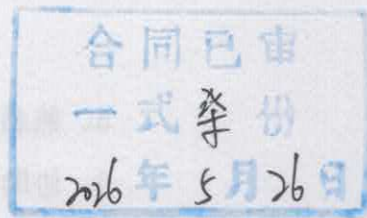 合同已审
一式柒份
2026年5月26日